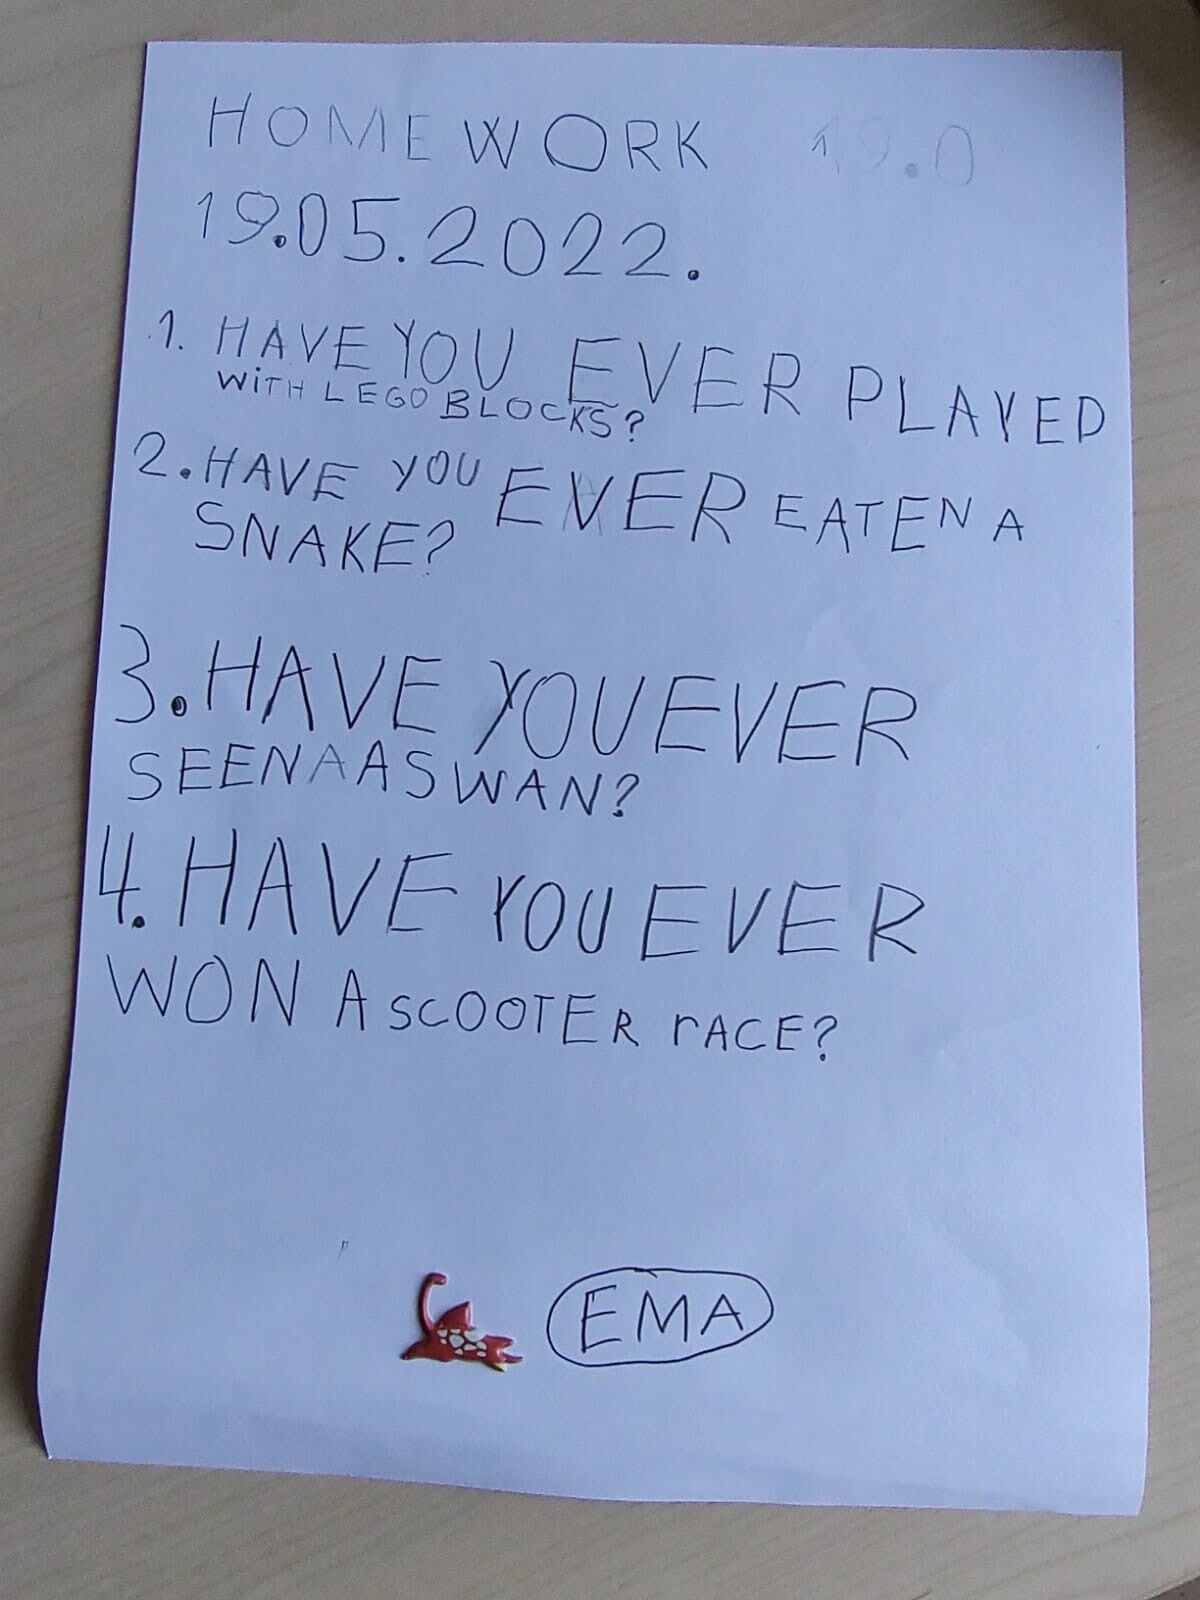 HOMEWORK 19.0
19.05.2022.
1. HAVE YOU EVER PLAYED
WiTH LEGO BLOCKS?
2. HAVE YOU EVER EATEN A
SNAKE?
3. HAVE YOU EVER
SEEN A A SWAN?
4. HAVE YOU EVER
WON A SCOOTER rACE?
EMA